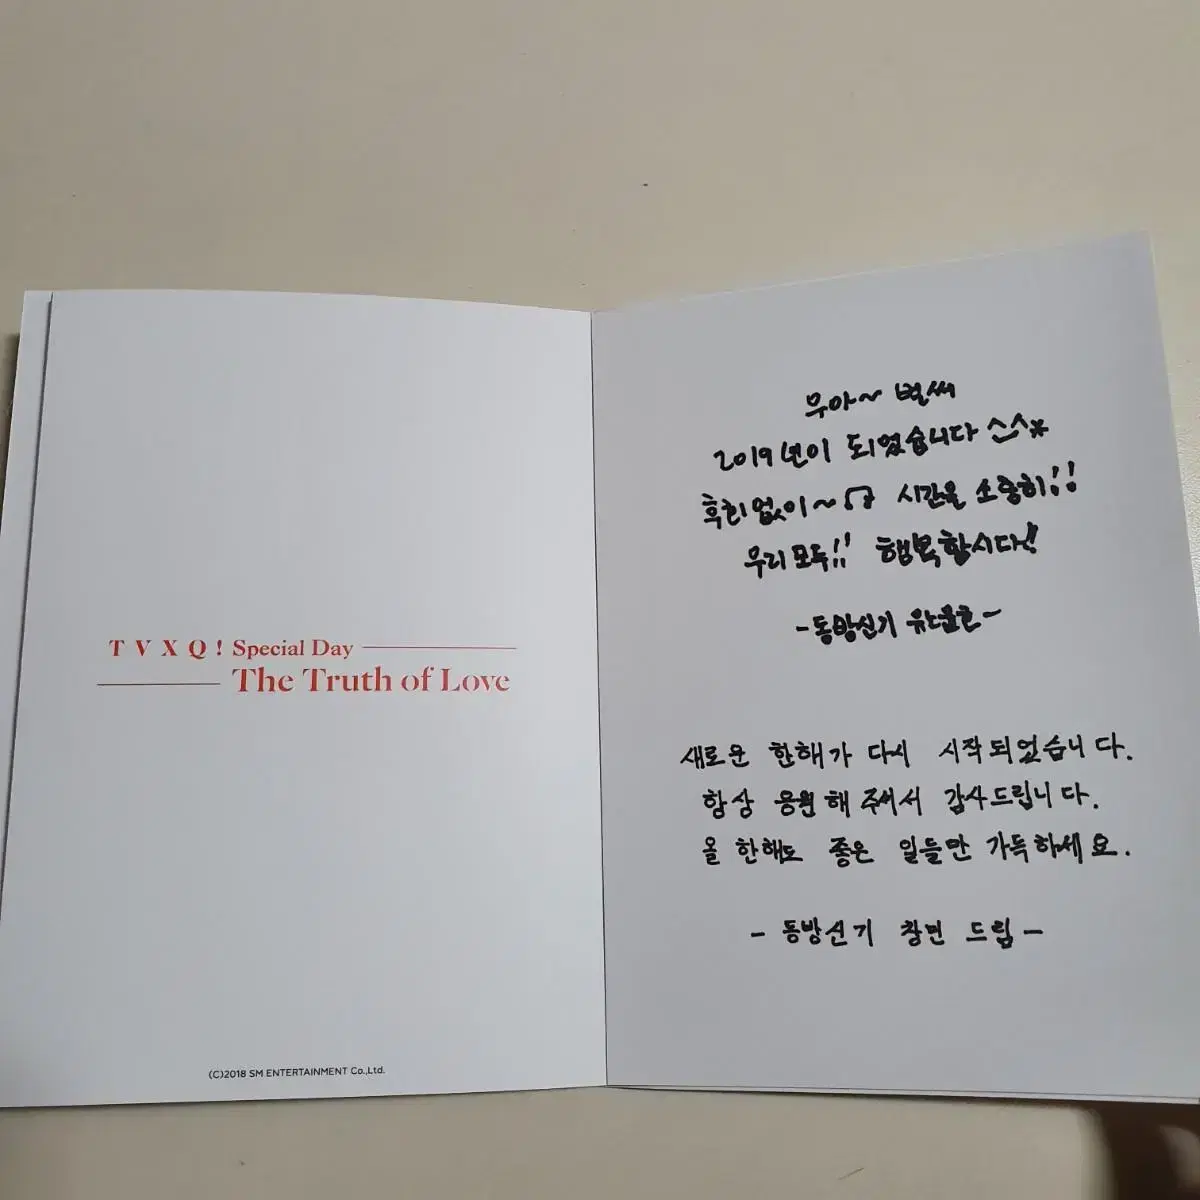 T V X Q ! Special Day
The Truth of Love
(C)2018 SM ENTERTAINMENT Co.,Ltd.
우아~ 벌써
2019년이 되었습니다 ^^*
후회없이~♫ 시간을 소중히!!
우리모두!! 행복합시다!
-동방신기 유노윤호-
새로운 한해가 다시 시작되었습니다.
항상 응원해 주셔서 감사드립니다.
올 한해도 좋은 일들만 가득하세요.
- 동방신기 창민 드림 -